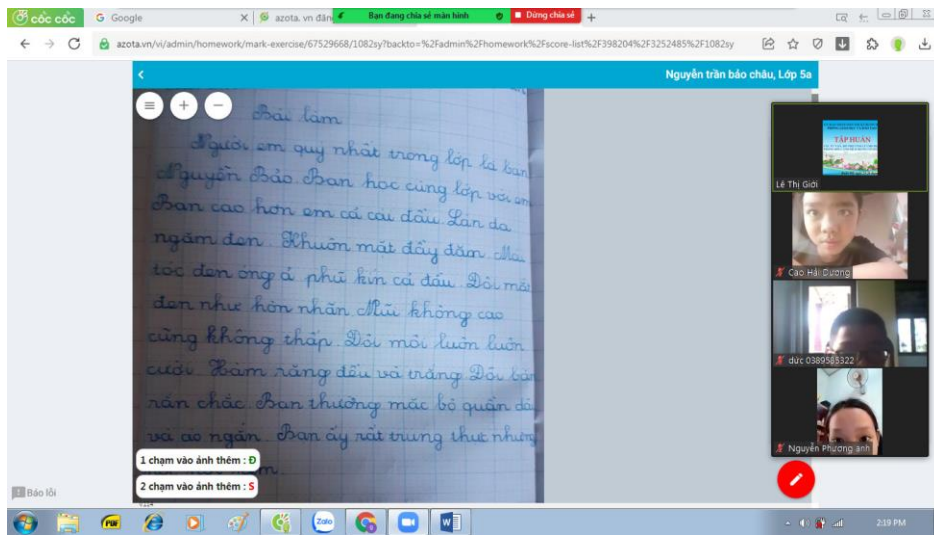 cốc cốc
Google
azota. vn đăn
Bạn đang chia sẻ màn hình
Dừng chia sẻ
azota.vn/vi/admin/homework/mark-exercise/67529668/1082sy?backto=%2Fadmin%2Fhomework%2Fscore-list%2F398204%2F3252485%2F1082sy
Nguyễn trần bảo châu, Lớp 5a
Bài làm
Người em quý nhất trong lớp là bạn
Nguyên Bảo. Bạn học cùng lớp với em
Bạn cao hơn em cả cái đầu. Làn da
ngăm đen. Khuôn mặt đầy đặn. Mái
tóc đen óng ả phủ kín cả đầu. Đôi mắt
đen như hòn nhãn. Mũi không cao
cũng không thấp. Đôi môi luôn luôn
cười. Hàm răng đều và trắng. Đôi bàn
rắn chắc. Bạn thường mặc bộ quần dài
và áo ngắn. Bạn ấy rất trung thực nhưng
1 chạm vào ảnh thêm : Đ
2 chạm vào ảnh thêm : S
TẬP HUẤN
Lê Thị Giới
Cao Hải Dương
đức 0389585322
Nguyễn Phương anh
Báo lỗi
PDF
Zalo
2:19 PM